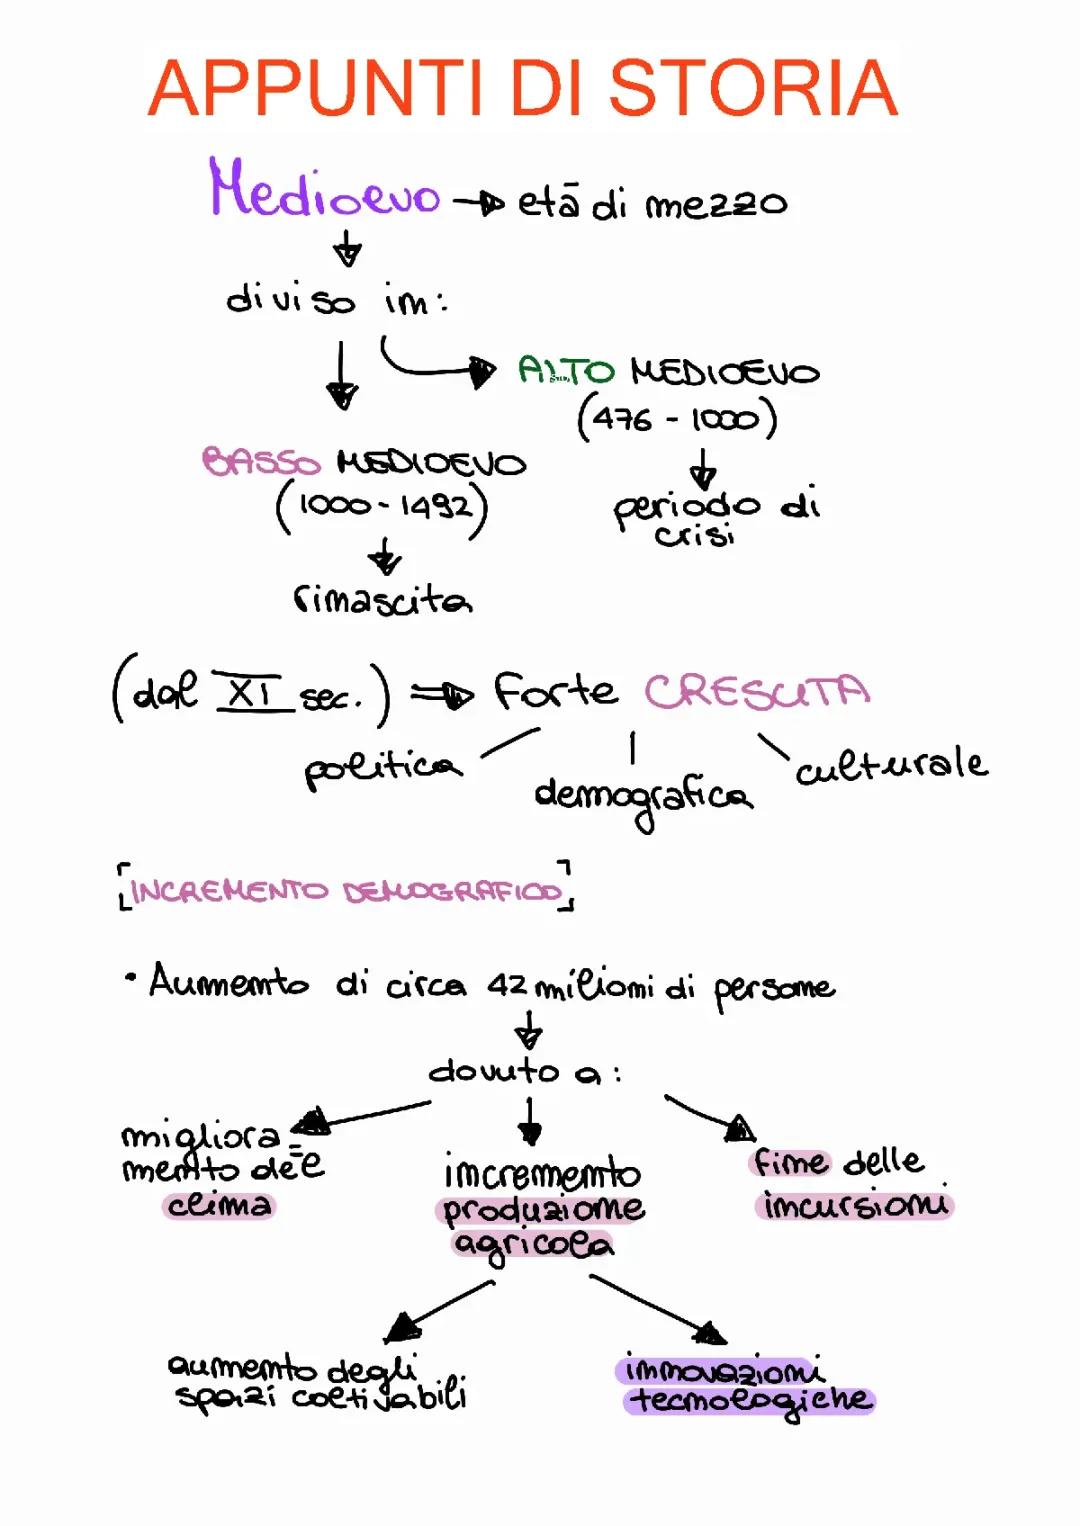 APPUNTI DI STORIA
Medioevo → età di mezzo
diviso in:
ALTO MEDIOEVO
(476 - 1000)
periodo di
crisi
BASSO MEDIOEVO
(1000 - 1492)
rinascita
(dal XI sec.) ⇒ forte CRESCITA
politica
demografica
culturale
[INCREMENTO DEMOGRAFICO]
• Aumento di circa 42 milioni di persone
dovuto a:
migliora=
mento del
clima
incremento
produzione
agricola
fine delle
incursioni
aumento degli
spazi coltivabili
innovazioni
tecnologiche